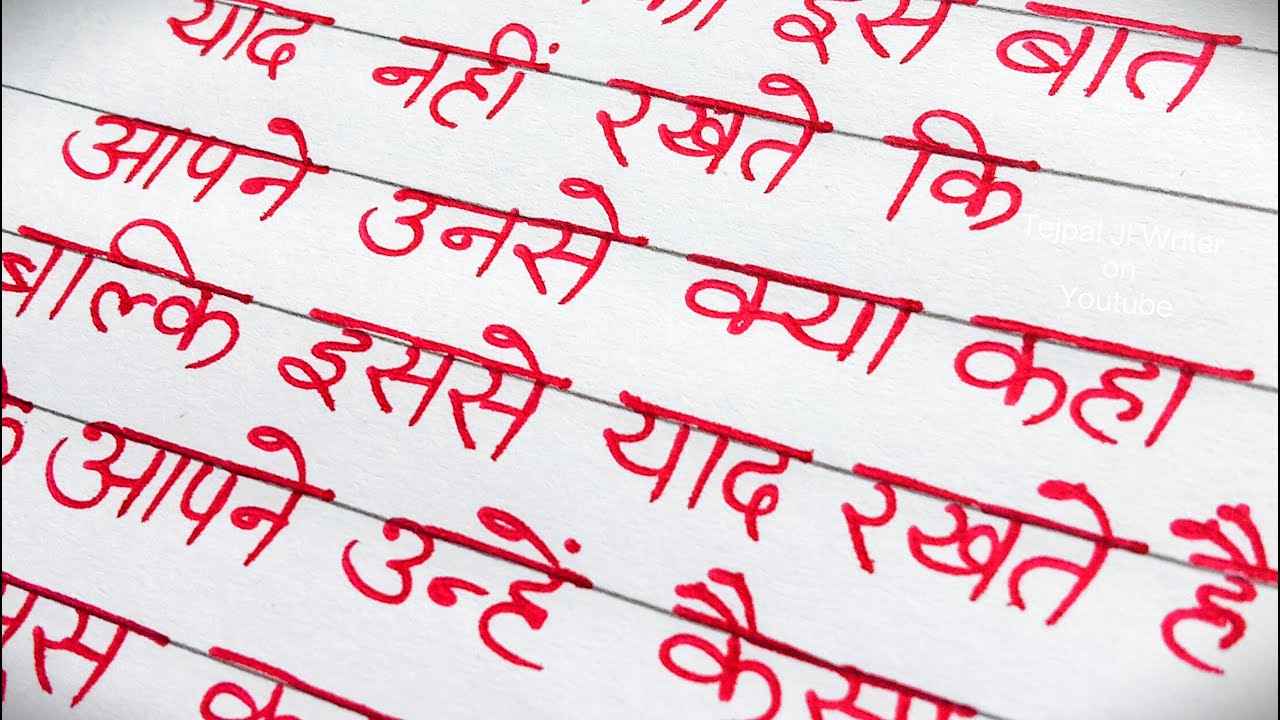 इस बात
याद नहीं रखते कि
आपने उनसे क्या कहा
बाल्कि इससे याद रखते है
आपने उन्हें कैसा
Tejpal JI Writer
on
Youtube